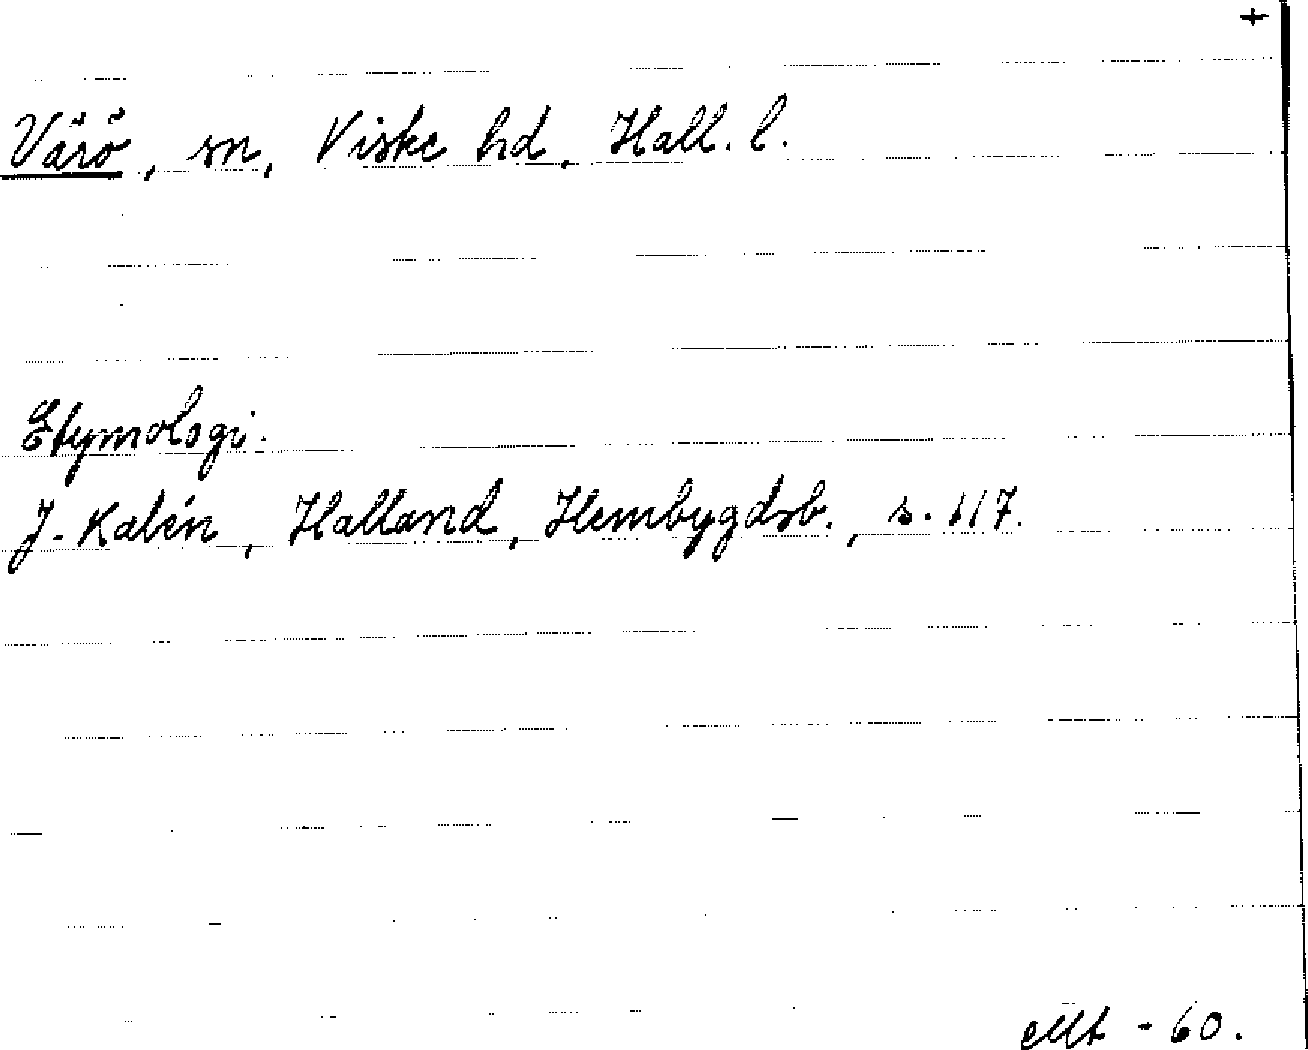 +
Värö, sn, Viske hd, Hall. l.
Etymologi.
J. Kalén, Halland, Hembygdsb., s. 117.
Mt - 60.